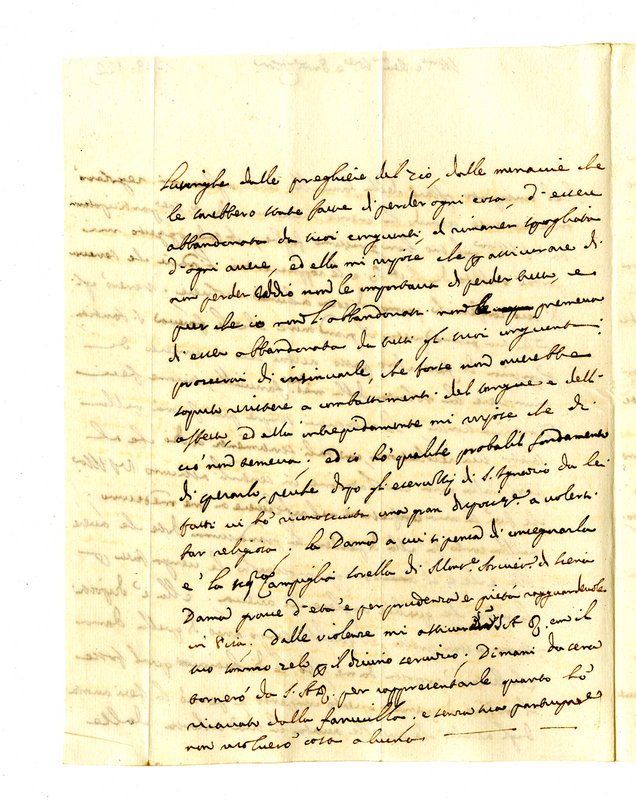 lusinghe dalle preghiere del Zio, dalle minaccie che
le sarebbero state fatte di perder ogni cosa, d'essere
abbandonata da suoi congiunti, di rimaner spogliata
d'ogni avere, ed ella mi rispose che p assicurare di
non perder Iddio non le importava di perder tutto, e
pur che io non l'abbandonassi non premeva
di esser abbandonata da tutti gl. suoi congiunti:
procurai di insinuarle, che forse non averebbe
saputo resistere a combattimenti del sangue e dell'
affetto, ed ella intrepidamente mi rispose che di
ciò non temeva; ed io hò qualche probabil fondamento
di sperarlo, perche dopo gl. esercizij di S. Ignazio da lei
fatti vi hò riconosciuta una gran disposiz.e a volersi
far religiosa; la Dama a cui si pensa di consegnarla
e' la Campiglia sorella di Mons.e di Siena
Dama grave d'età e per prudenza e pietà ragguardevole
in Pisa. Dalle violenze mi assicurerà S. A. R. con il
suo sommo zelo p il divino servizio. Dimani da sera
tornerò da S. A. R. per rappresentarle quanto hò
ricavato dalla fanciulla, e senza sua partecipaz.e
non risolverò cosa alcuna